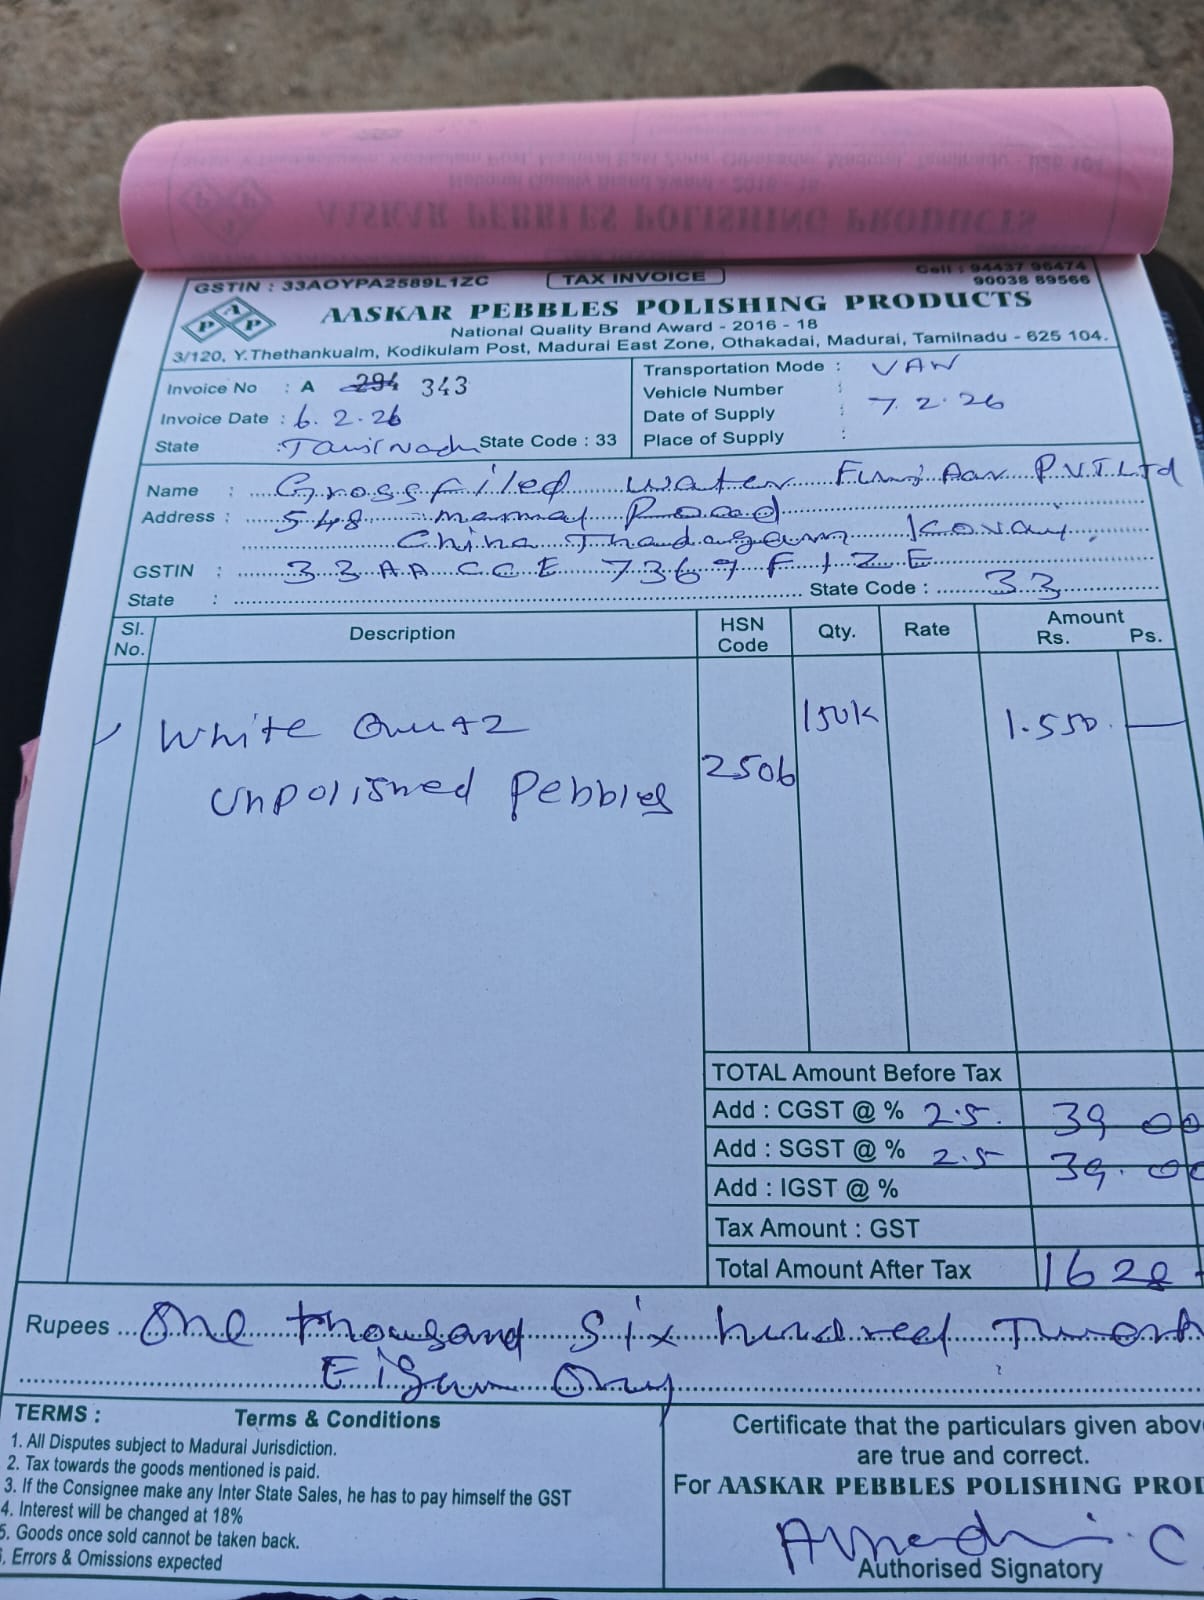 GSTIN : 33AOYPA2589L1ZC
TAX INVOICE
Cell : 94437 96474
90038 89566
AASKAR PEBBLES POLISHING PRODUCTS
National Quality Brand Award - 2016 - 18
3/120, Y.Thethankualm, Kodikulam Post, Madurai East Zone, Othakadai, Madurai, Tamilnadu - 625 104.
Invoice No : A 294 343
Invoice Date : 6.2.26
State : Tamilnadu State Code : 33
Transportation Mode : VAN
Vehicle Number :
Date of Supply : 7.2.26
Place of Supply :
Name : Grossfiled water PVT.Ltd
Address : 548 Road
China Thadagam Kovai
GSTIN : 33AACCE7369F1ZE
State : State Code : 33
Sl. No. Description HSN Code Qty. Rate Amount Rs. Ps.
White Quartz 150K 1.550. —
Unpolished Pebbles 2506
TOTAL Amount Before Tax
Add : CGST @ % 2.5. 39 00
Add : SGST @ % 2.5 39.00
Add : IGST @ %
Tax Amount : GST
Total Amount After Tax 1628
Rupees One thousand six hundred
Only
TERMS : Terms & Conditions
1. All Disputes subject to Madurai Jurisdiction.
2. Tax towards the goods mentioned is paid.
3. If the Consignee make any Inter State Sales, he has to pay himself the GST
4. Interest will be changed at 18%
5. Goods once sold cannot be taken back.
. Errors & Omissions expected
Certificate that the particulars given above
are true and correct.
For AASKAR PEBBLES POLISHING
Authorised Signatory